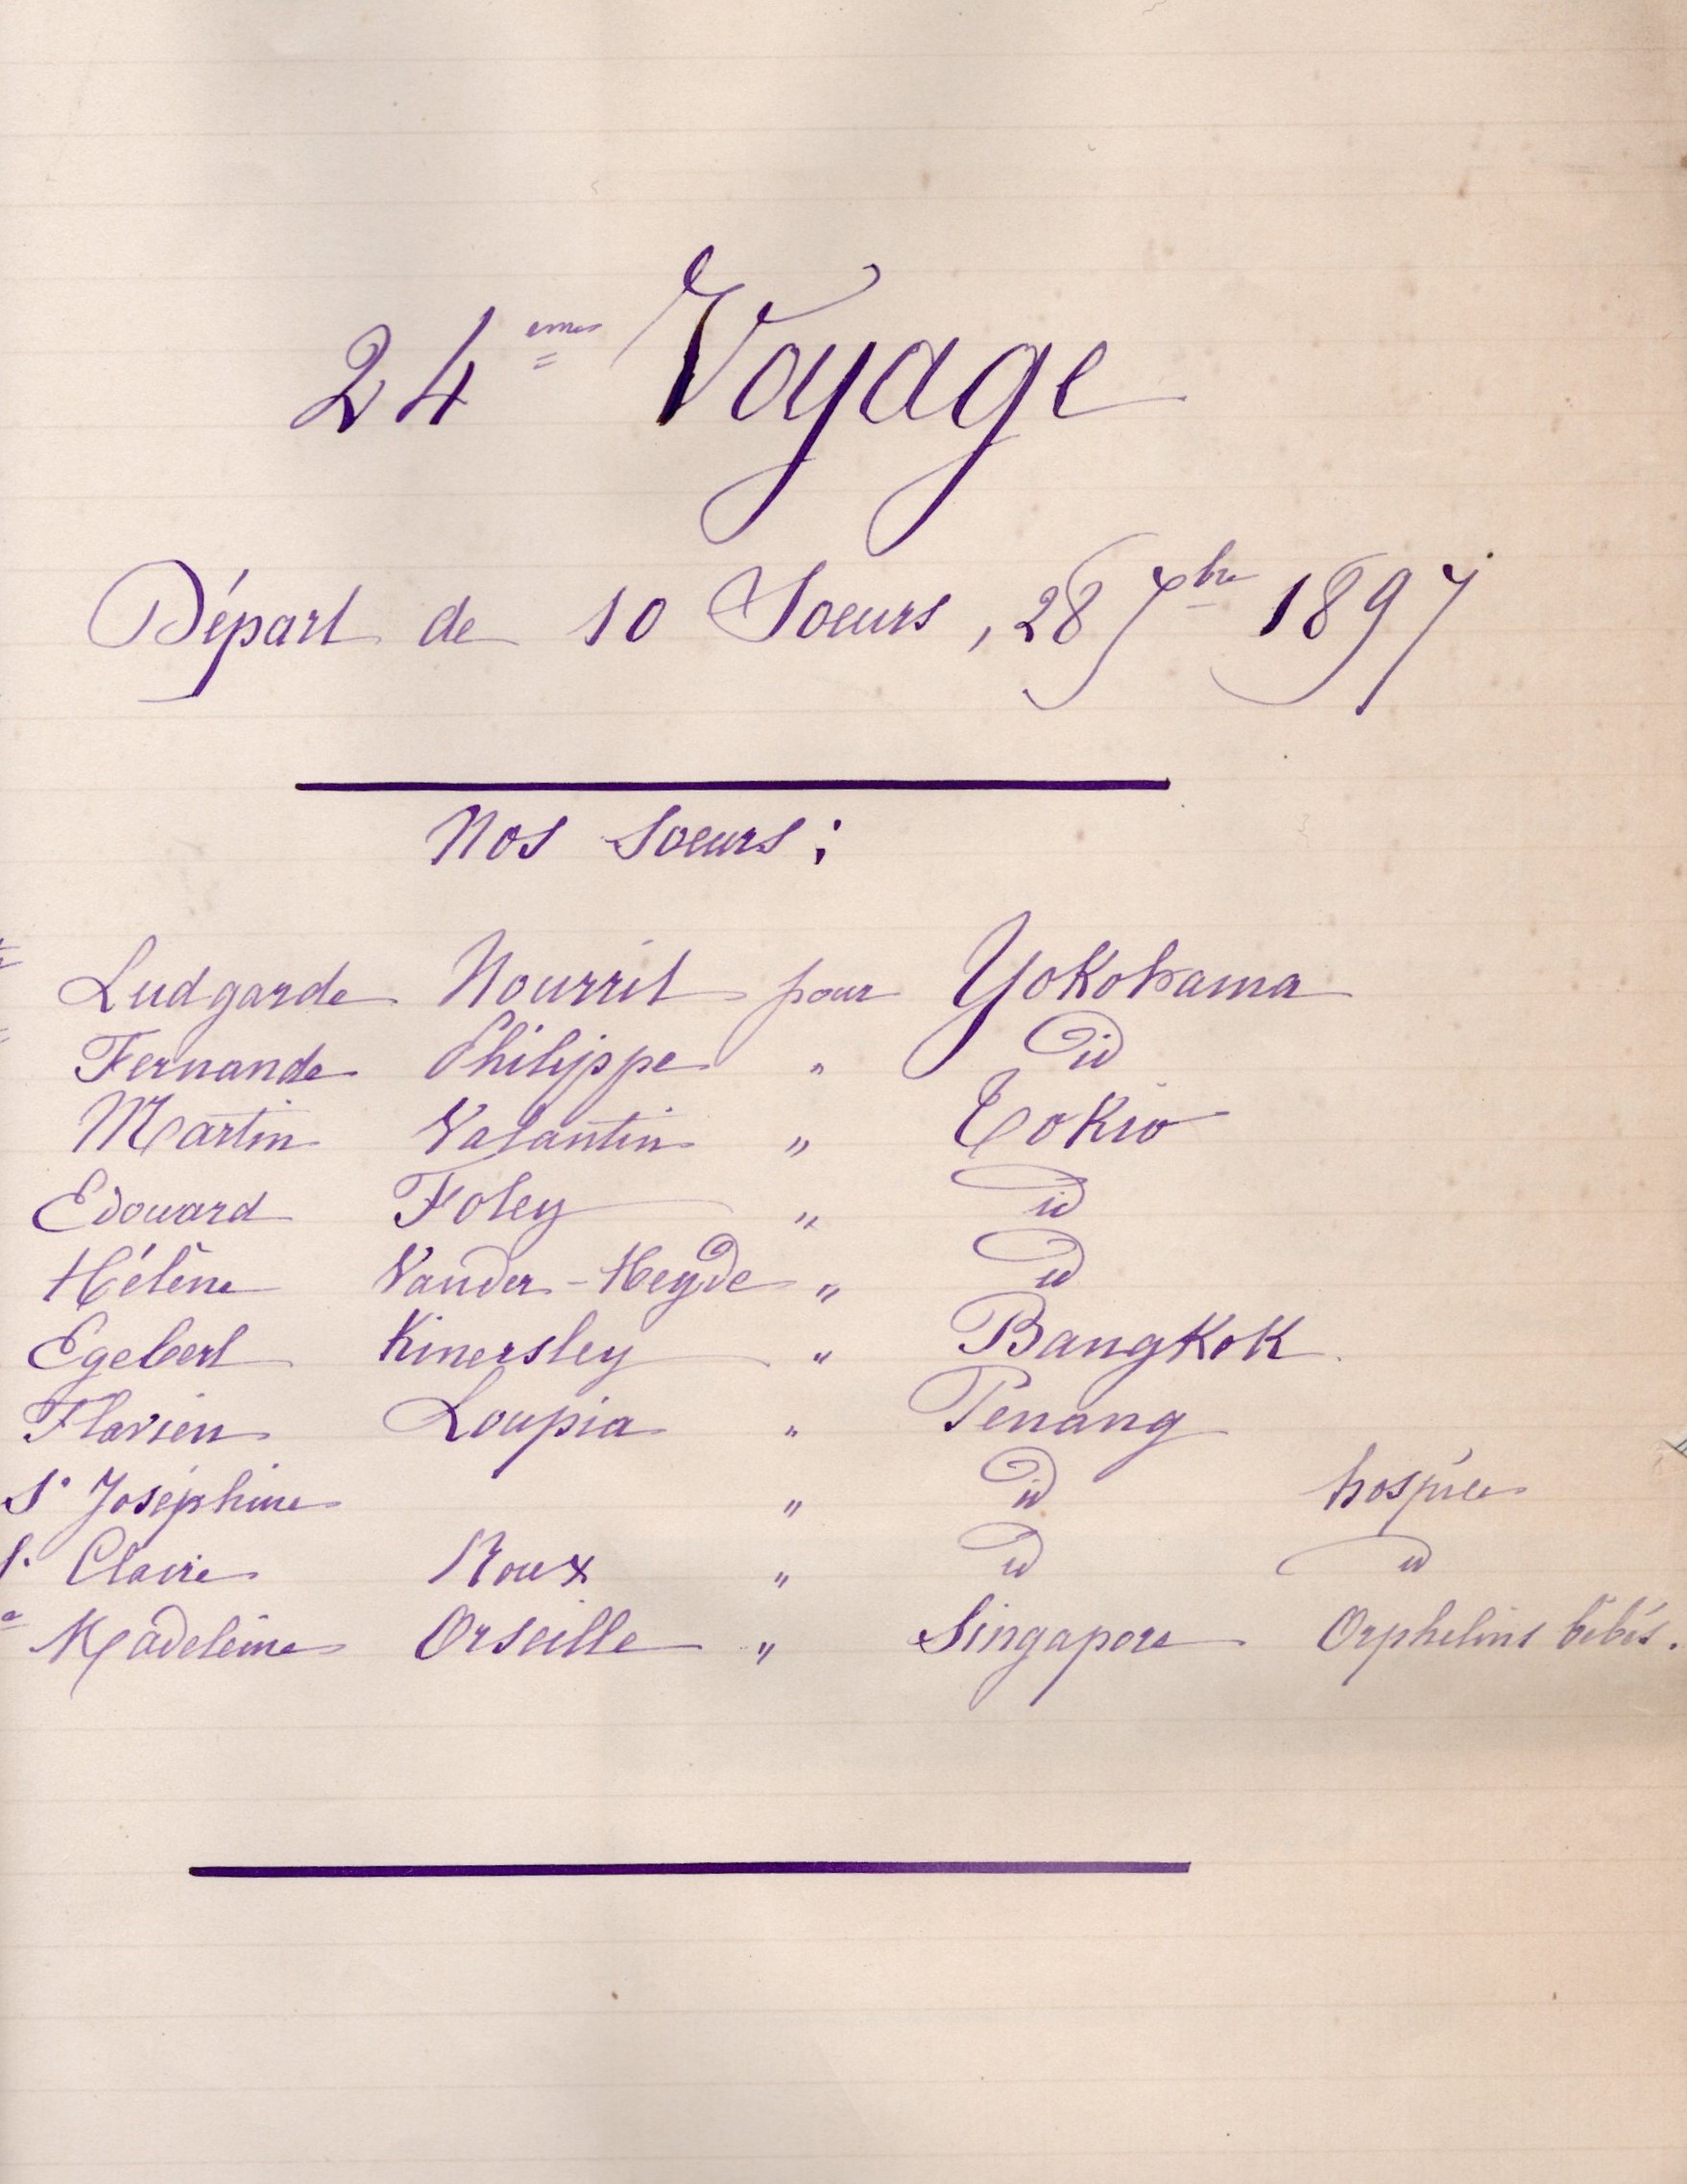 24eme Voyage
Départ de 10 Soeurs, 28 7bre 1897
Nos Soeurs :
Ludgarde Nourrit pour Yokohama
Fernande Philippe " id
Martin Valantin " Tokio
Edouard Foley " id
Hélène Vander-Heyde " id
Egebert Kinersley " Bangkok
Flavien Loupia " Penang
St Joséphine " id hospice
St Claire Roux " id id
Madeleine Orseille " Singapore Orphelins bébés.